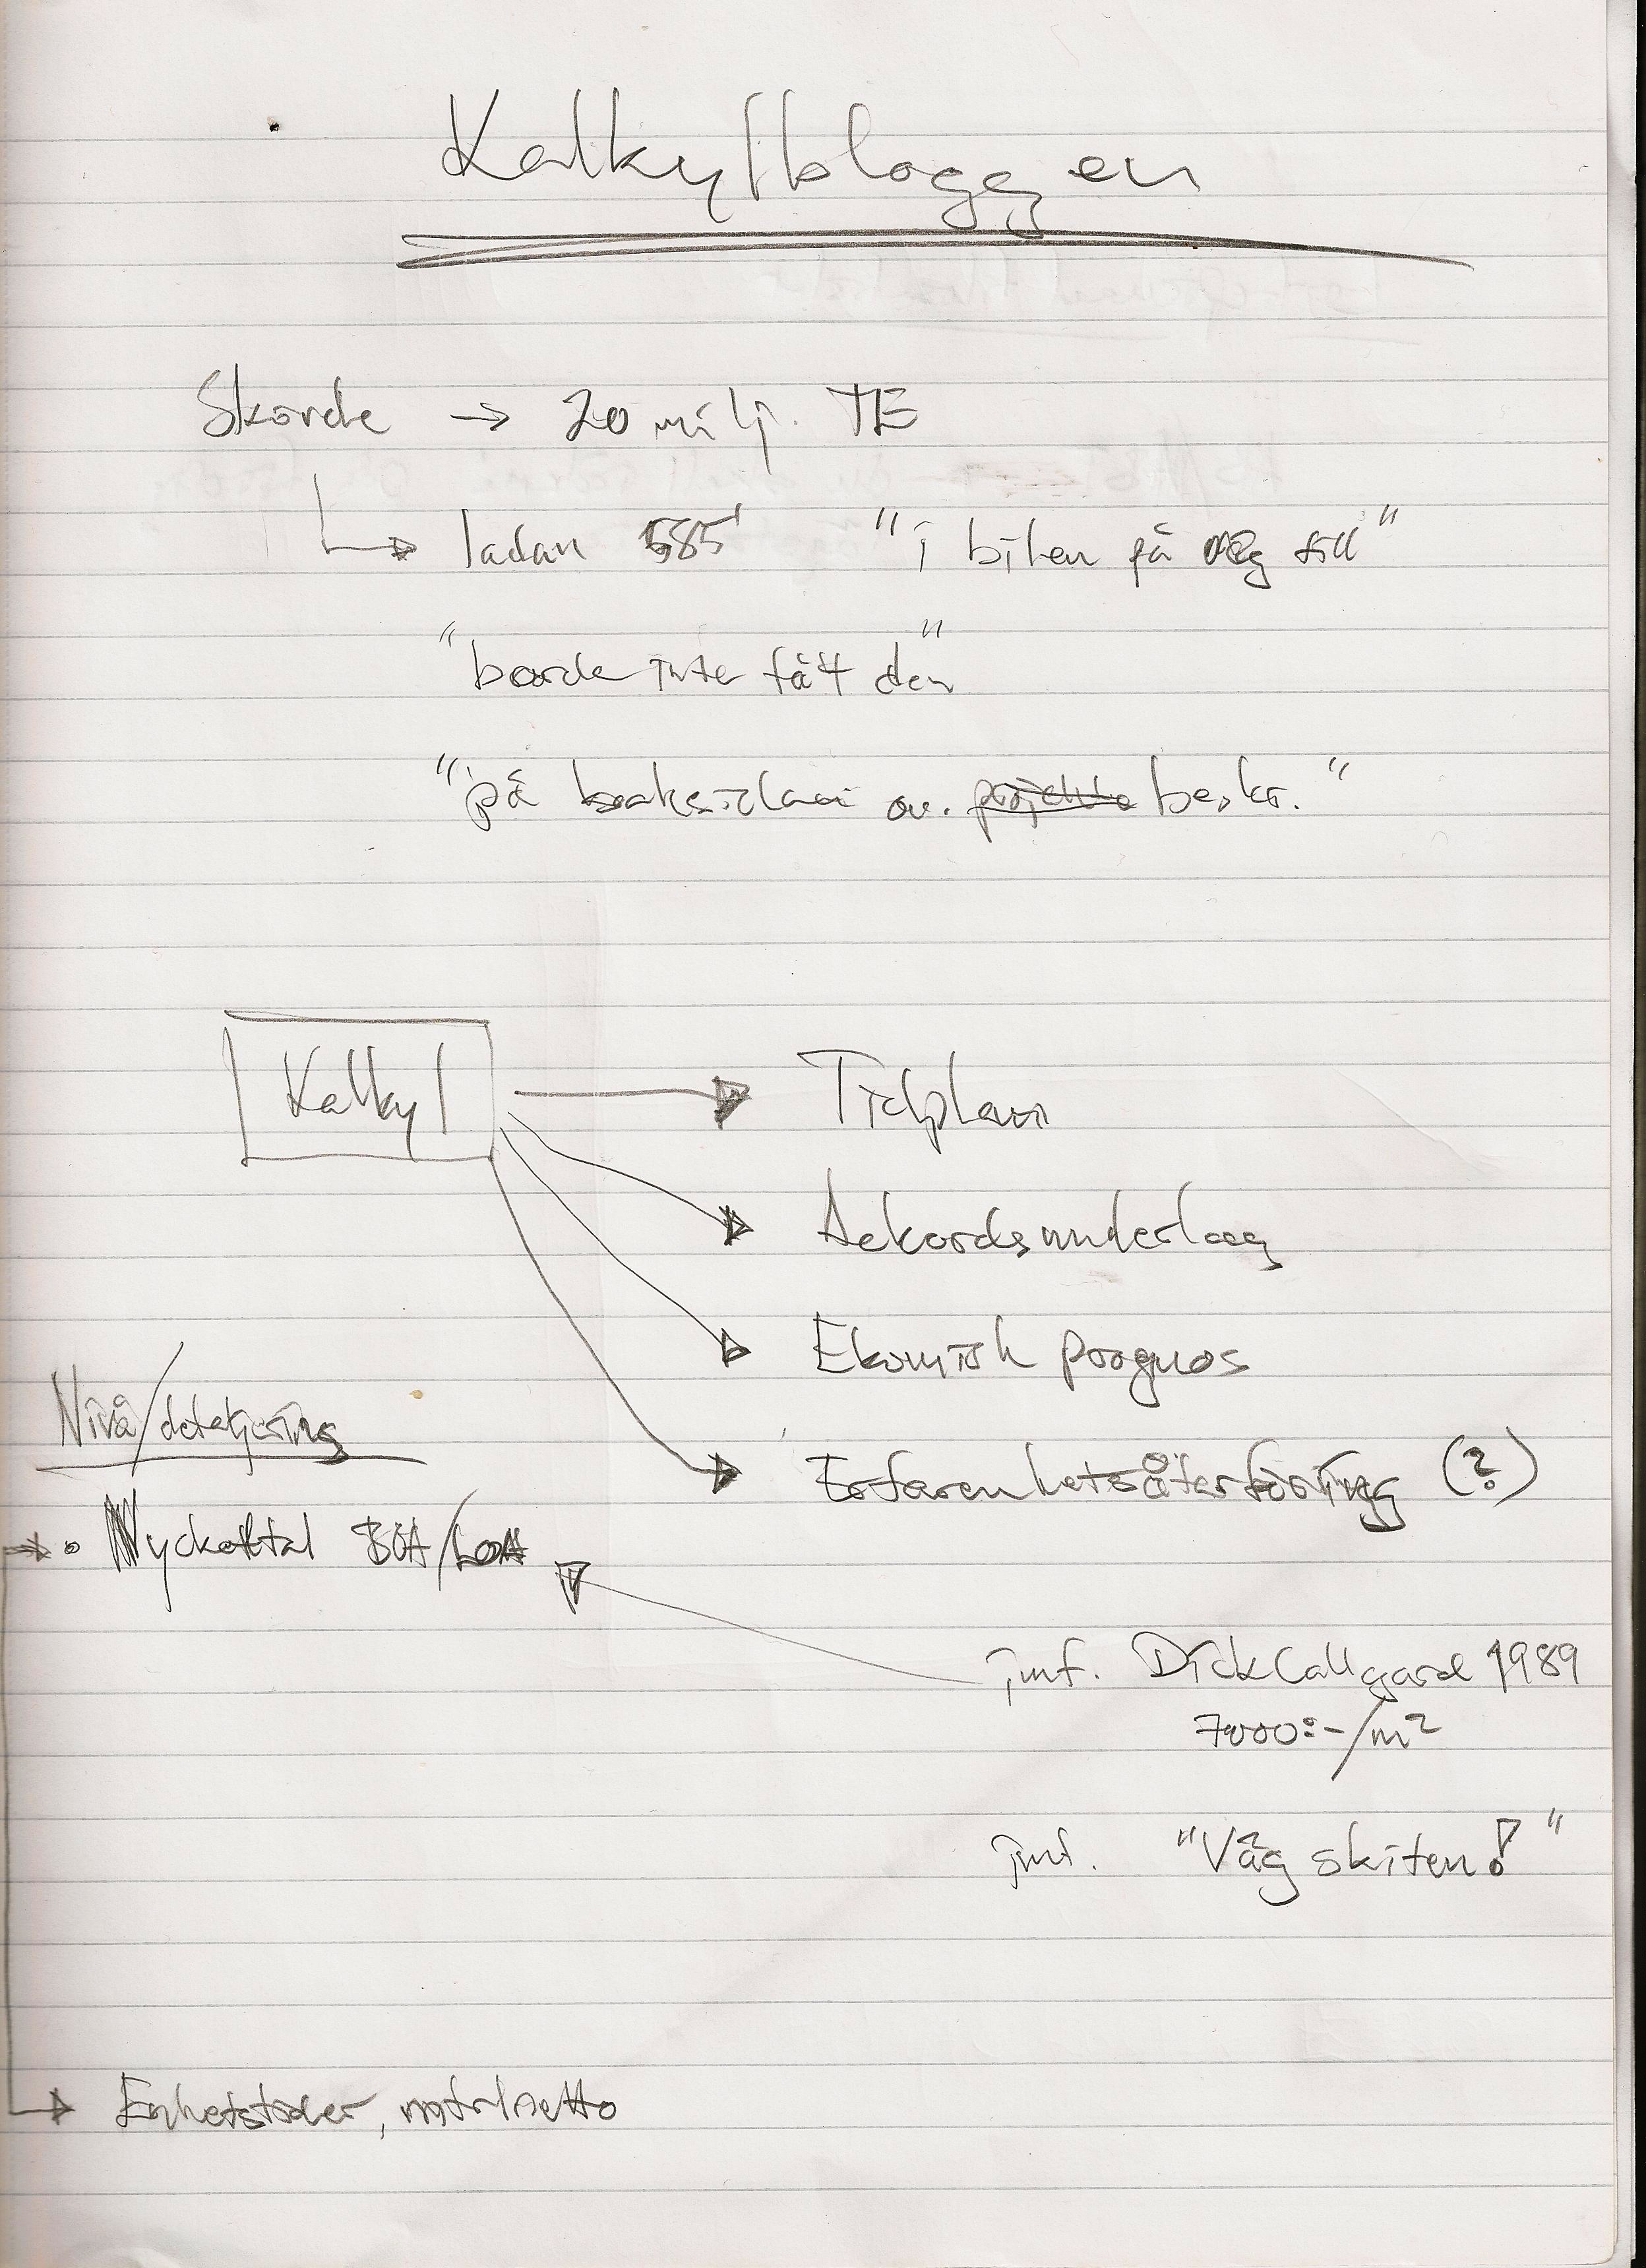 Kalkylbloggen
Skörde → 20 milj. TE
→ ladan 585' "i bilen på väg till"
"borde inte fått den"
"på baksidan av. projekte beskr."
Kalkyl
→ Tidplan
→ Ackordsunderlag
→ Ekomisk prognos
→ Erfarenhetsåterföring (?)
Nivå/detaljering
→ • Nyckeltal BTA/LOA
jmf. Dick Callgard 1989
7000:-/m²
jmf. "Våg skiten!"
→ Enhetstider, mtrlnetto